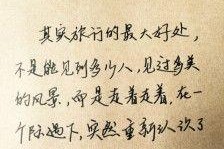 其实旅行的最大好处，
不是能见到多少人，见过多美
的风景，而是走着走着，在一
个际遇下，突然重新认识了